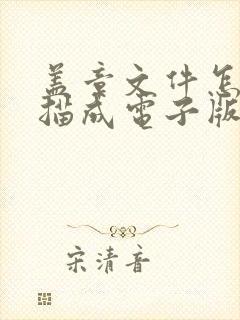 盖章文件怎
描成电子版
宋清音